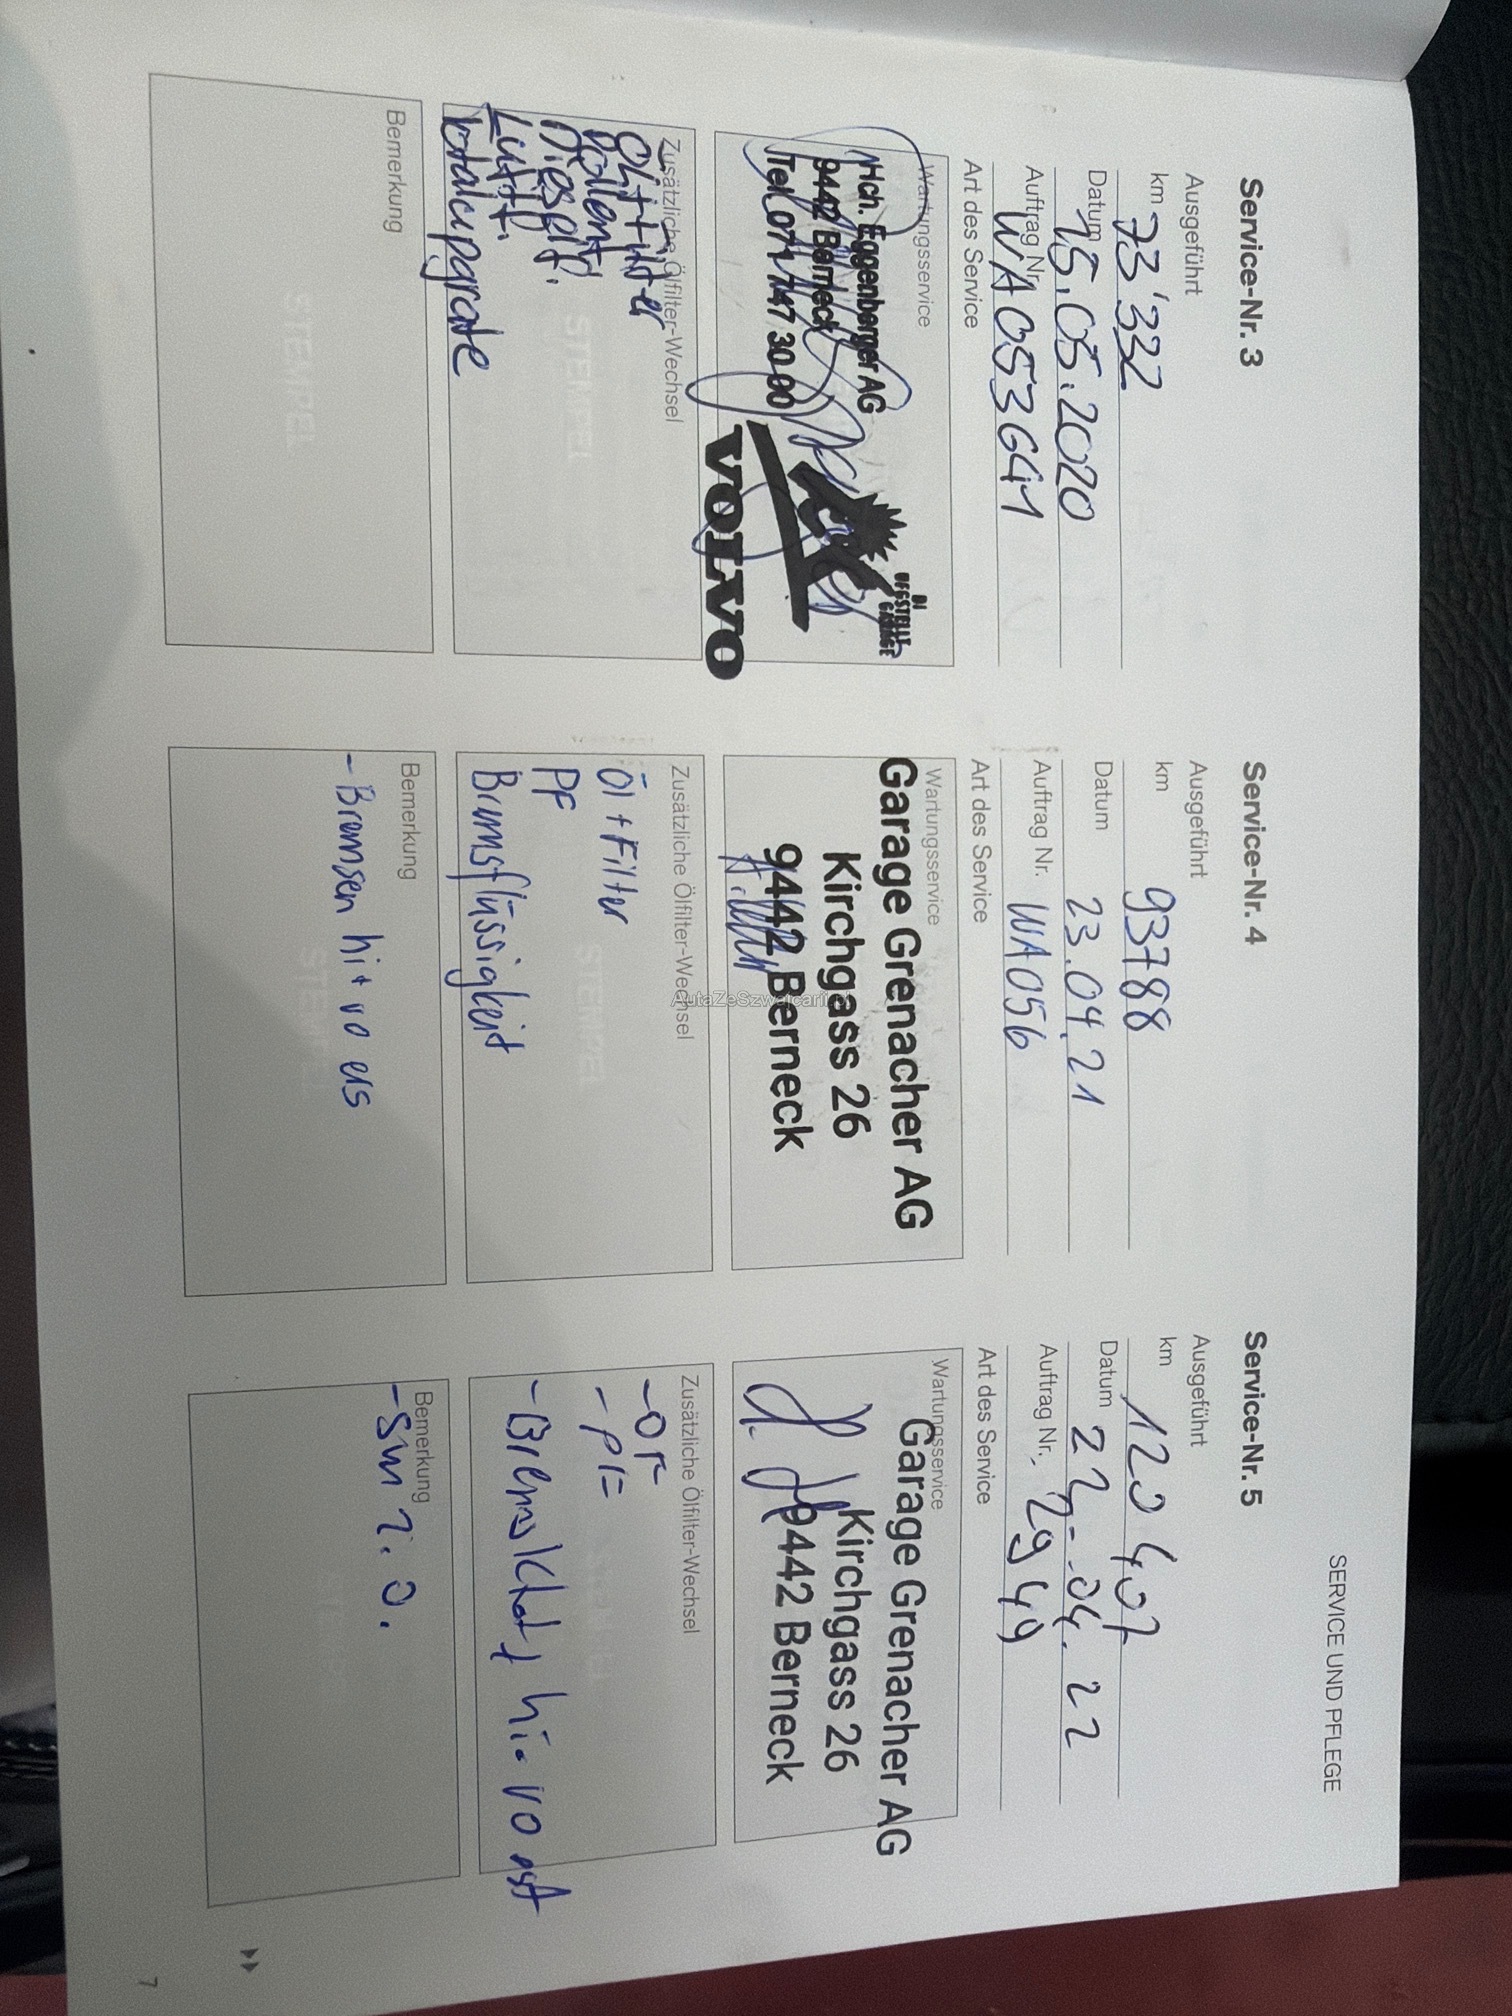 SERVICE UND PFLEGE
Service-Nr. 3
Ausgeführt
km 73'332
Datum 15.05.2020
Auftrag Nr. WA053641
Art des Service
Wartungsservice
Hch. Eggenberger AG
9442 Berneck
Tel. 071 747 30 00
DI
UFGSTELLT
GARAGE
VOLVO
Zusätzliche Ölfilter-Wechsel
Öl++Filter
Pollenf.
Dieself.
Luftf.
totalupgrade
STEMPEL
Bemerkung
STEMPEL
Service-Nr. 4
Ausgeführt
km 93788
Datum 23.04.21
Auftrag Nr. WA056
Art des Service
Wartungsservice
Garage Grenacher AG
Kirchgass 26
9442 Berneck
Zusätzliche Ölfilter-Wechsel
Öl+Filter
PF
Bremsflüssigkeit
STEMPEL
Bemerkung
- Bremsen hi+vo ers
STEMPEL
Service-Nr. 5
Ausgeführt
km 120407
Datum 22.04.22
Auftrag Nr. 2949
Art des Service
Wartungsservice
Garage Grenacher AG
Kirchgass 26
9442 Berneck
Zusätzliche Ölfilter-Wechsel
- OF
- PF
- Bremsklötz hi. vo erst
Bemerkung
- SW i.O.
7
AutaZeSzwajcarii.pl